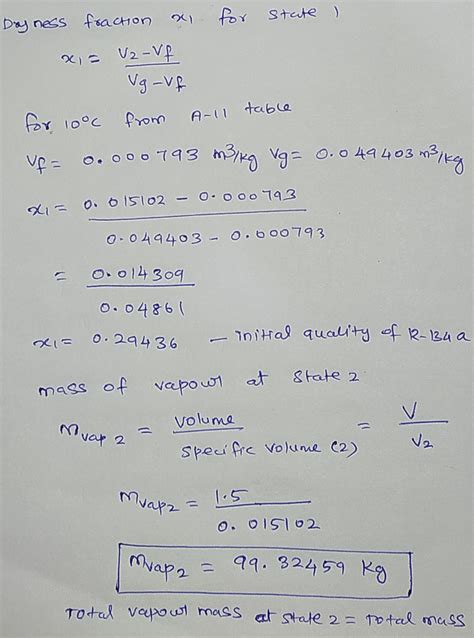 Dryness fraction x1 for state 1
x1 = V2-Vf / Vg-Vf
for 10°C from A-11 table
Vf = 0.000793 m³/kg Vg = 0.049403 m³/kg
x1 = 0.015102 - 0.000793 / 0.049403 - 0.000793
= 0.014309 / 0.04861
x1 = 0.29436 — initial quality of R-134a
mass of vapour at state 2
mvap 2 = volume / specific volume (2) = V / V2
mvap2 = 1.5 / 0.015102
mvap2 = 99.32459 Kg
Total vapour mass at state 2 = Total mass